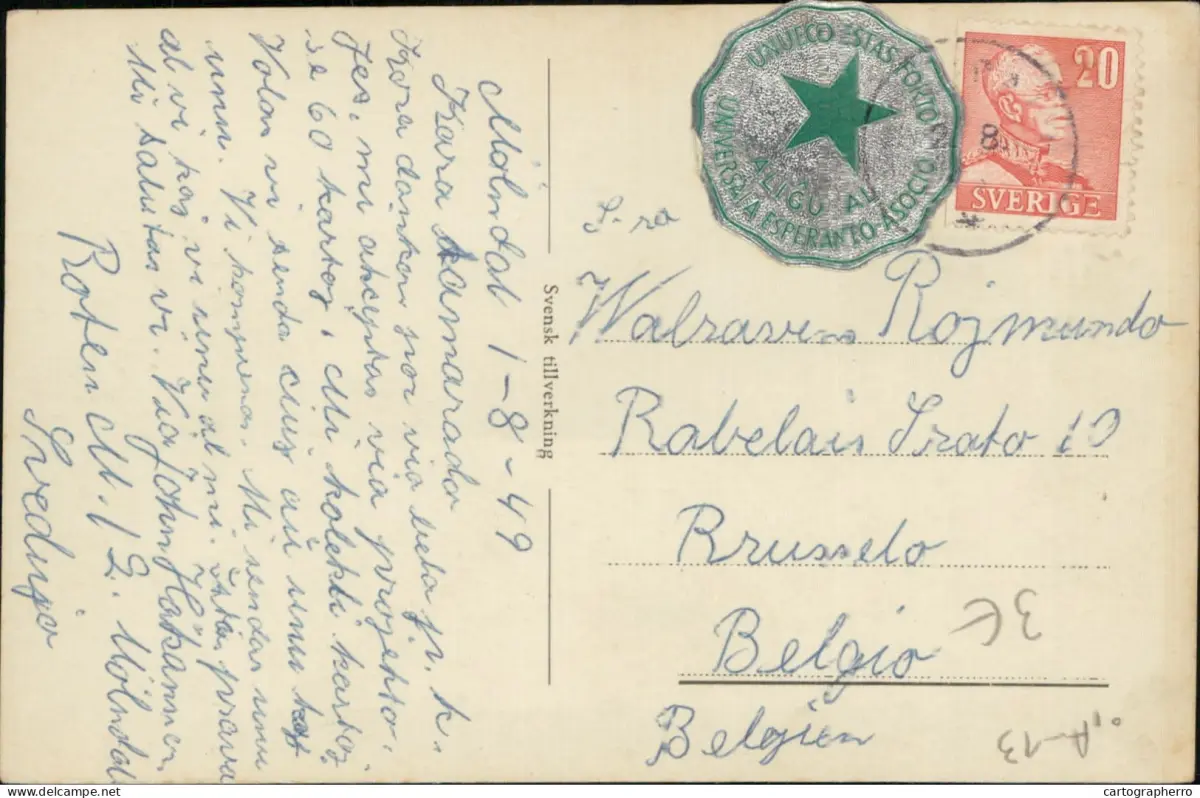 Mölndal 1-8-49
Kara kamarado
Kora dankon por via bela p. k.
Jes, mi akceptas via projekto.
se 60 kartoj, Mi kolekti kartoj
Volon vi senda ciuj aŭ unu
unu. Vi komprenas. Mi sendas unu
al vi kaj vi unu al mi. prava
Mi salutas vi. Via John Håkansson
Roten M. 12. Mölndal
Svedujo
Svensk tillverkning
UNUIĜO ESTAS FORTO
ALIĜU AL
UNIVERSALA ESPERANTO-ASOCIO
20
SVERIGE
8
S-ro
Walravens Rojmundo
Rabelais Strato 10
Brusselo
Belgio
Belgien
3€
A-13
cartographerro